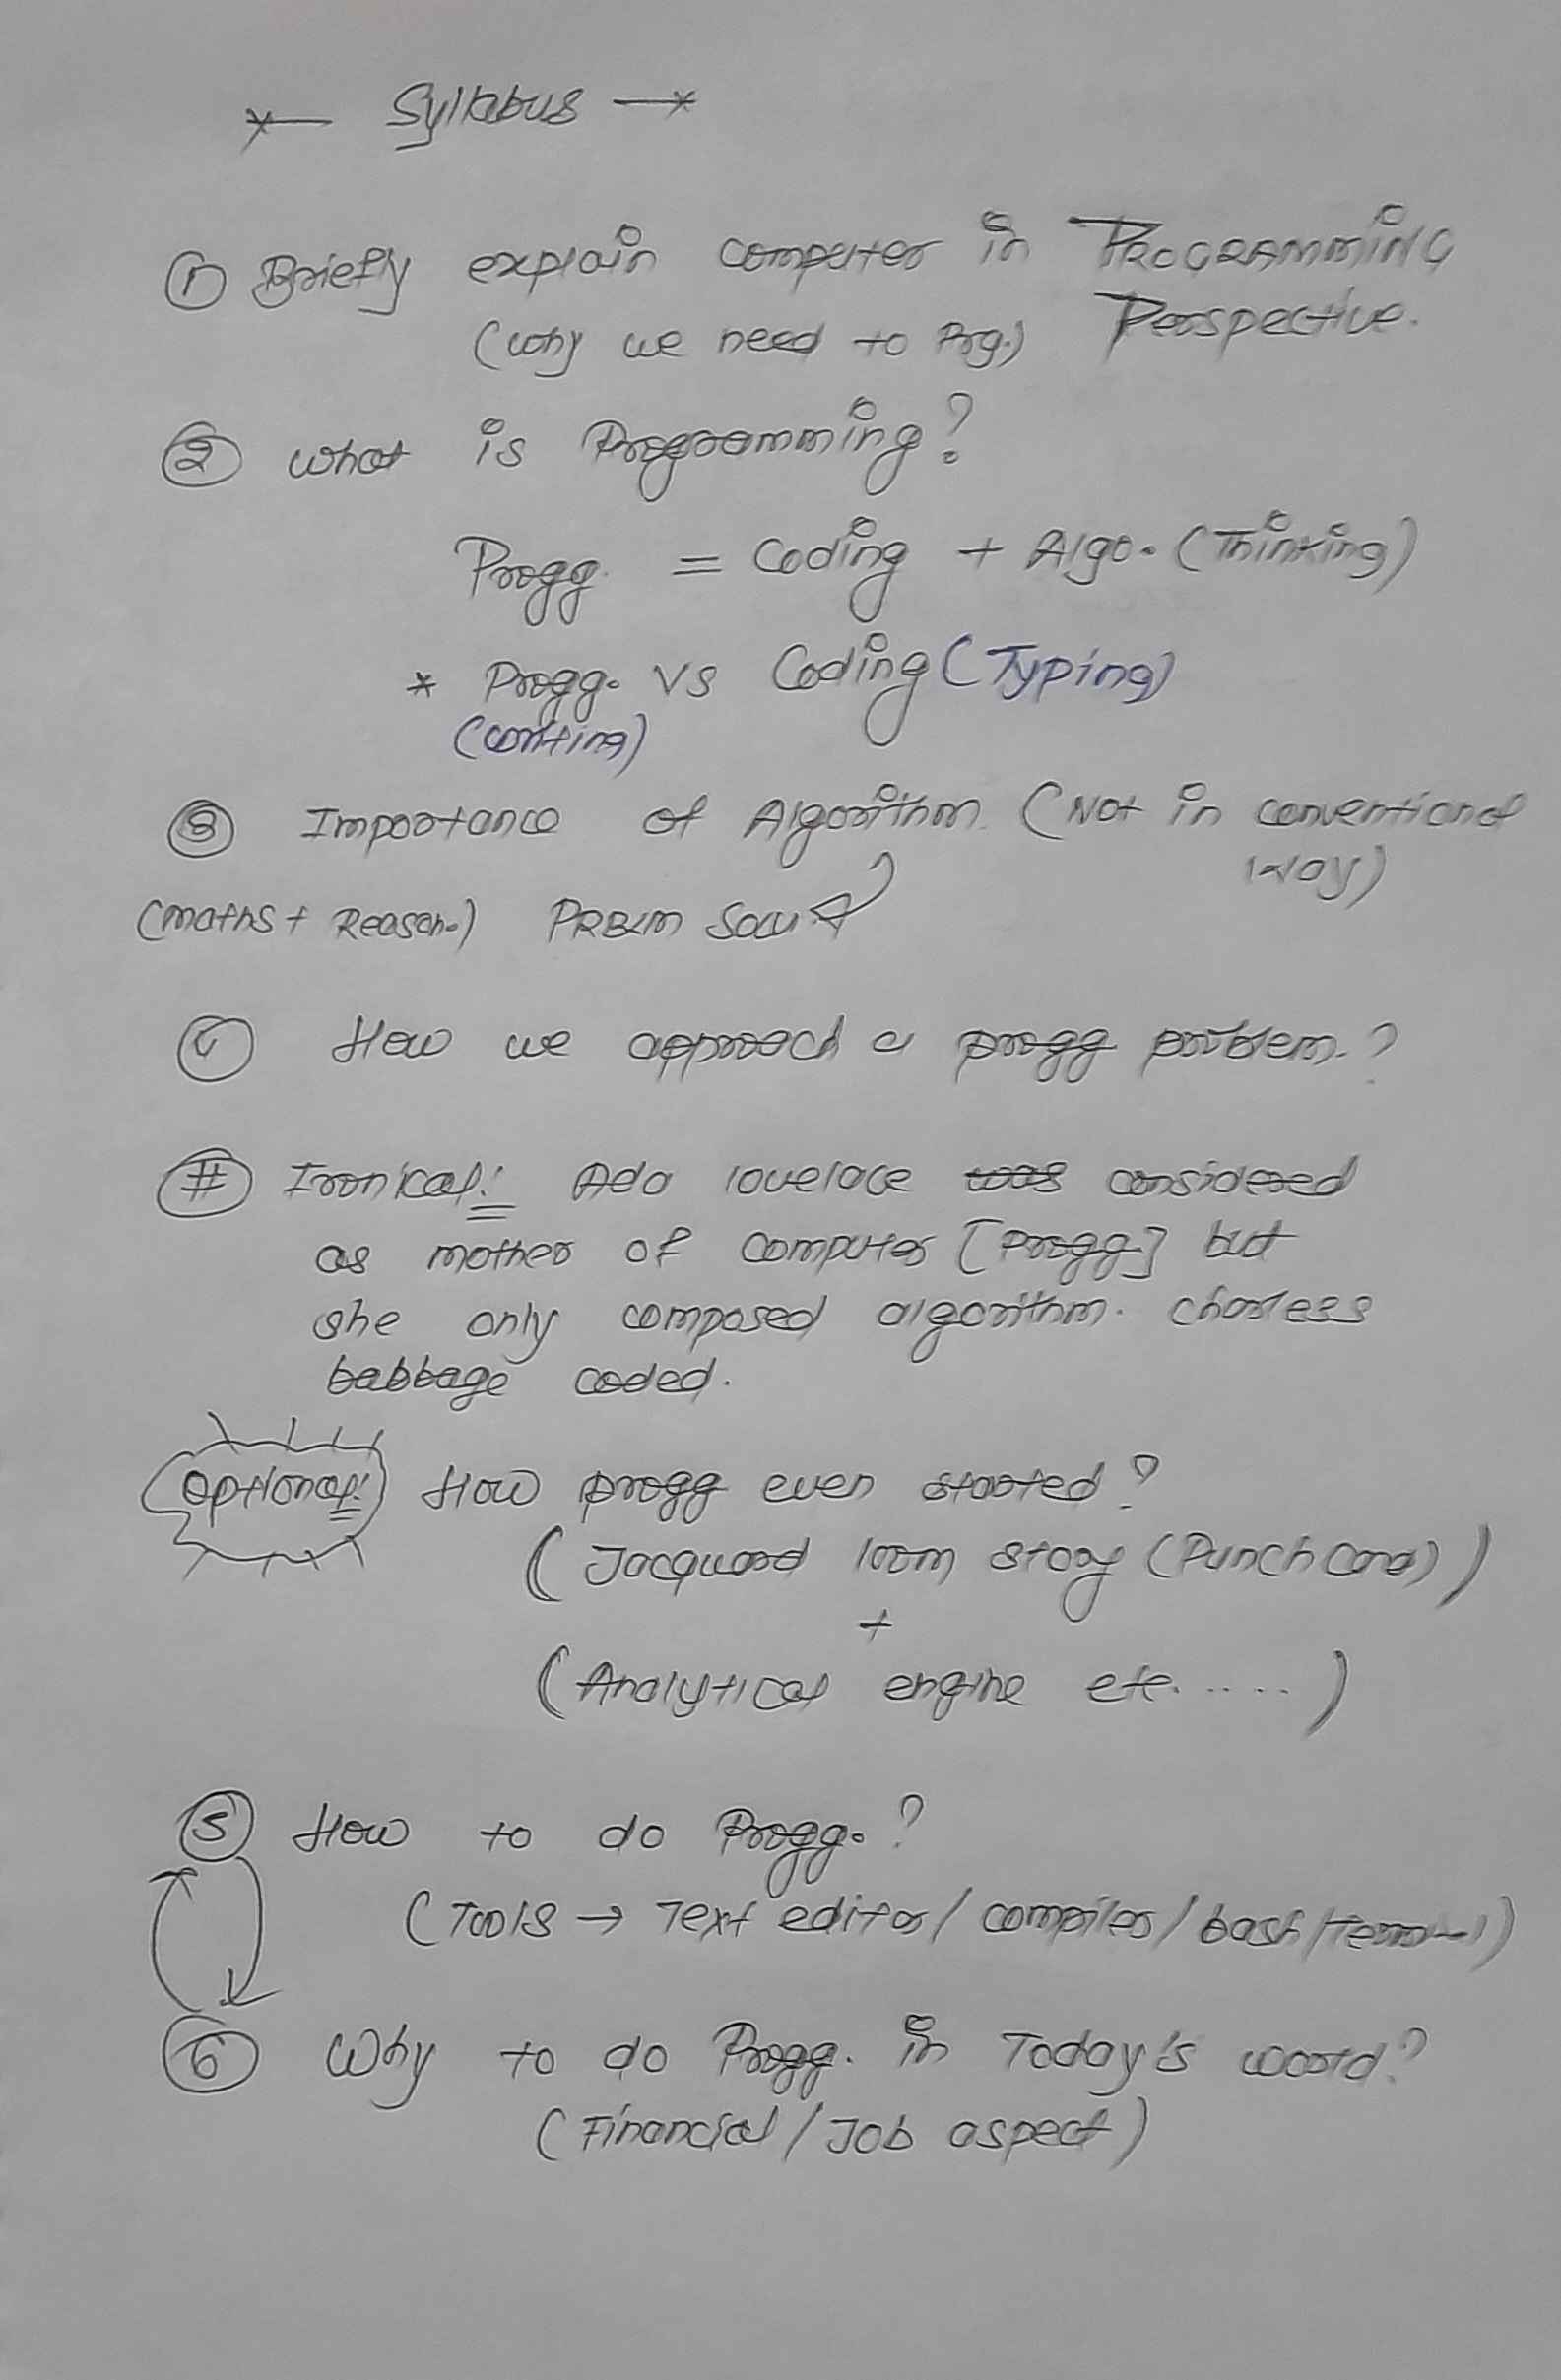 Syllabus
① Briefly explain computer in PROGRAMMING
(why we need to Prg.) Perspective.
② what is Programming?
Progg. = Coding + Algo. (Thinking)
* Progg. vs Coding (Typing)
(writing)
③ Importance of Algorithm. (Not in conventional
way)
(maths + Reason.) PRBLM Solu
How we approach a progg problem.?
# Ironical: Ada lovelace was considered
as mother of computer [Progg] but
she only composed algorithm. charless
babbage coded.
Optional: How progg even started?
(Jacquard loom story (Punch Card))
+
(Analytical engine etc. .....)
⑤ How to do Progg.?
(Tools → Text editor / compiler / bash / terminal)
⑥ Why to do Progg. in Today's world?
(Financial / Job aspect)